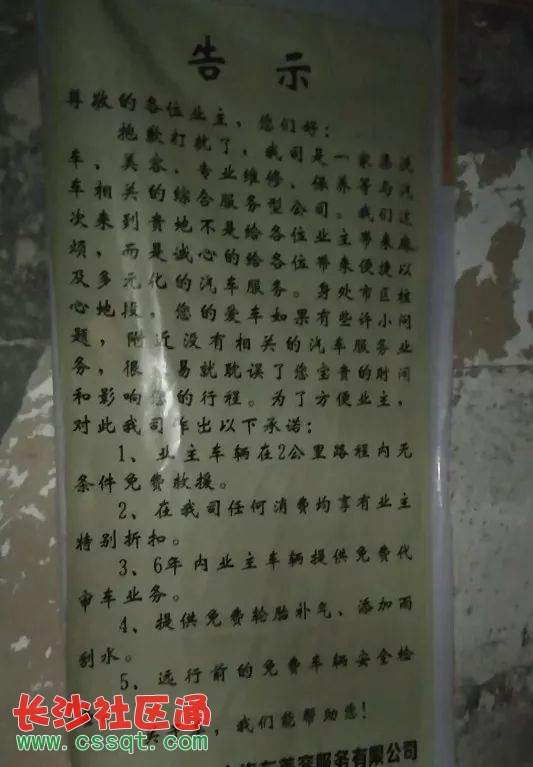 告示
尊敬的各位业主，您们好：
抱歉打扰了，我司是一家集洗
车、美容、专业维修、保养等与汽
车相关的综合服务型公司。我们这
次来到贵地不是给各位业主带来麻
烦，而是诚心的给各位带来便捷以
及多元化的汽车服务。身处市区核
心地段，您的爱车如果有些许小问
题，附近没有相关的汽车服务业
务，很容易就耽误了您宝贵的时间
和影响您的行程。为了方便业主，
对此我司作出以下承诺：
1、业主车辆在2公里路程内无
条件免费救援。
2、在我司任何消费均享有业主
特别折扣。
3、6年内业主车辆提供免费代
审车业务。
4、提供免费轮胎补气、添加雨
刮水。
5、远行前的免费车辆安全检
，我们能帮助您！
汽车美容服务有限公司
长沙社区通
www.cssqt.com